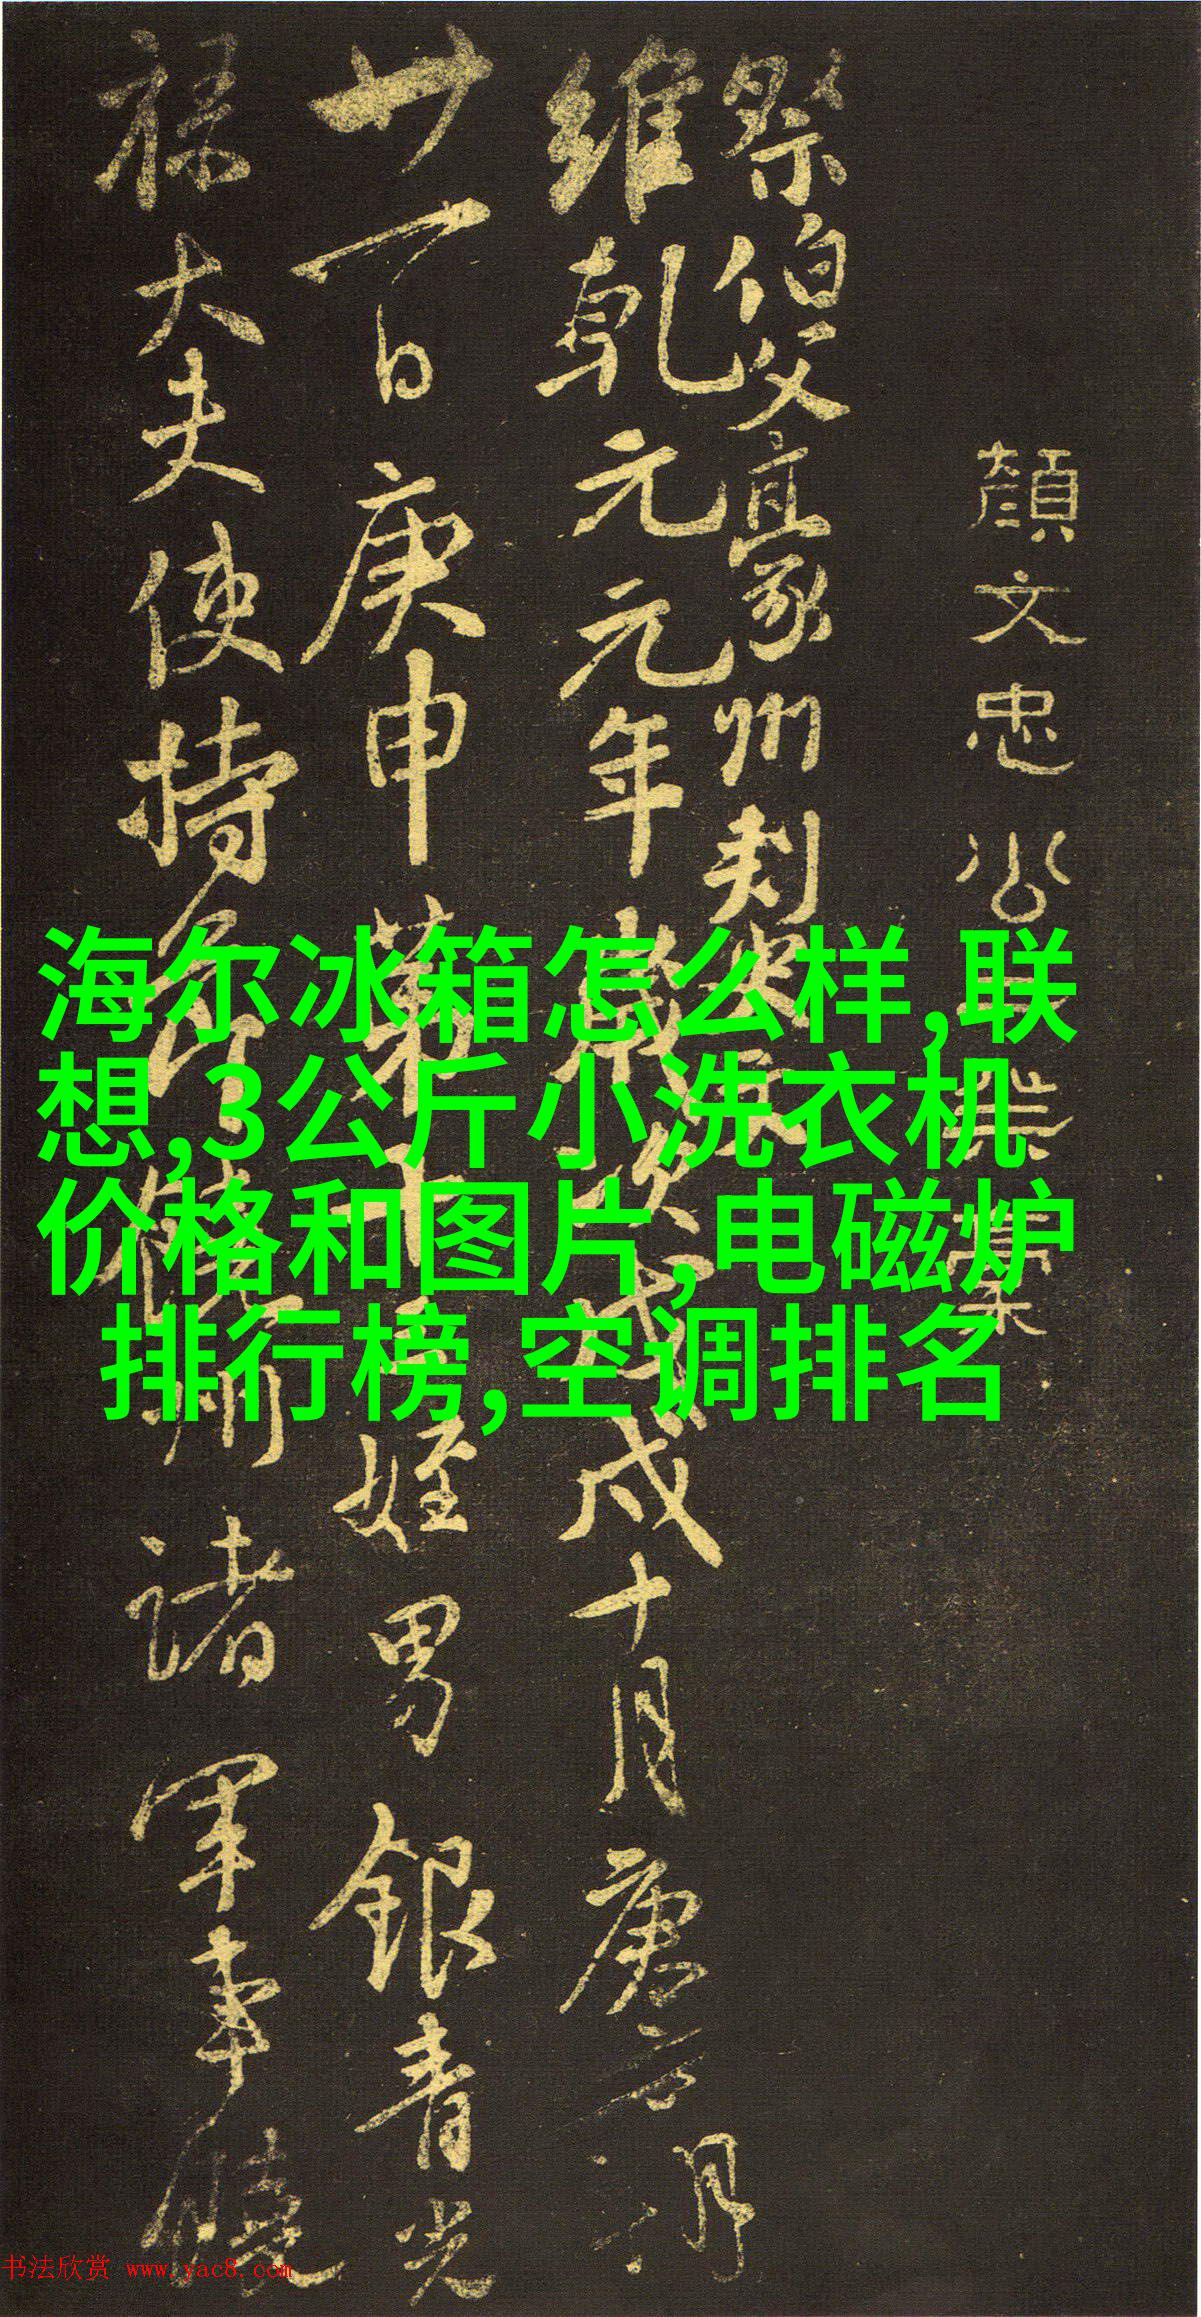 顏文忠公
祭伯父豪州刺史
維乾元元年歲次戊戌十月庚午朔
廿一日庚申第十三姪男銀青光
祿大夫使持節饒州諸軍事饒
海尔冰箱怎么样,联
想,3公斤小洗衣机
价格和图片,电磁炉
排行榜,空调排名
书法欣赏 www.yac8.com